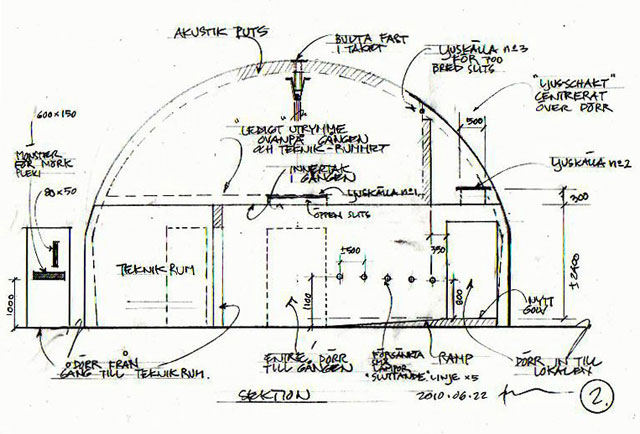 AKUSTIK PUTS
BULTA FAST
I TAKET
LJUSKÄLLA nr3
FÖR 700
BRED SLITS
"LJUSSCHAKT"
CENTRERAT
ÖVER DÖRR
600×150
500
"LEDIGT" UTRYMME
OVANPÅ GÅNGEN
OCH TEKNIK-RUMMET
MÖNSTER
FÖR MÖRK
80×50
INNERTAK
GÅNGEN
LJUSKÄLLA nr1
ÖPPEN SLITS
LJUSKÄLLA nr2
300
TEKNIKRUM
±500
350
±2400
1000
1100
800
NYTT
GOLV
DÖRR FRÅN
GÅNG TILL TEKNIKRUM.
ENTRE, DÖRR
TILL GÅNGEN
FÖRSÄNKTA
SMÅ
LAMPOR
"SLUTTANDE" LINJE ×5
RAMP
DÖRR IN TILL
LOKALEN
SEKTION
2010.06.22
2.